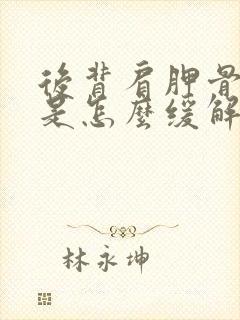 後背肩胛骨
是怎麼緩解
林永坤